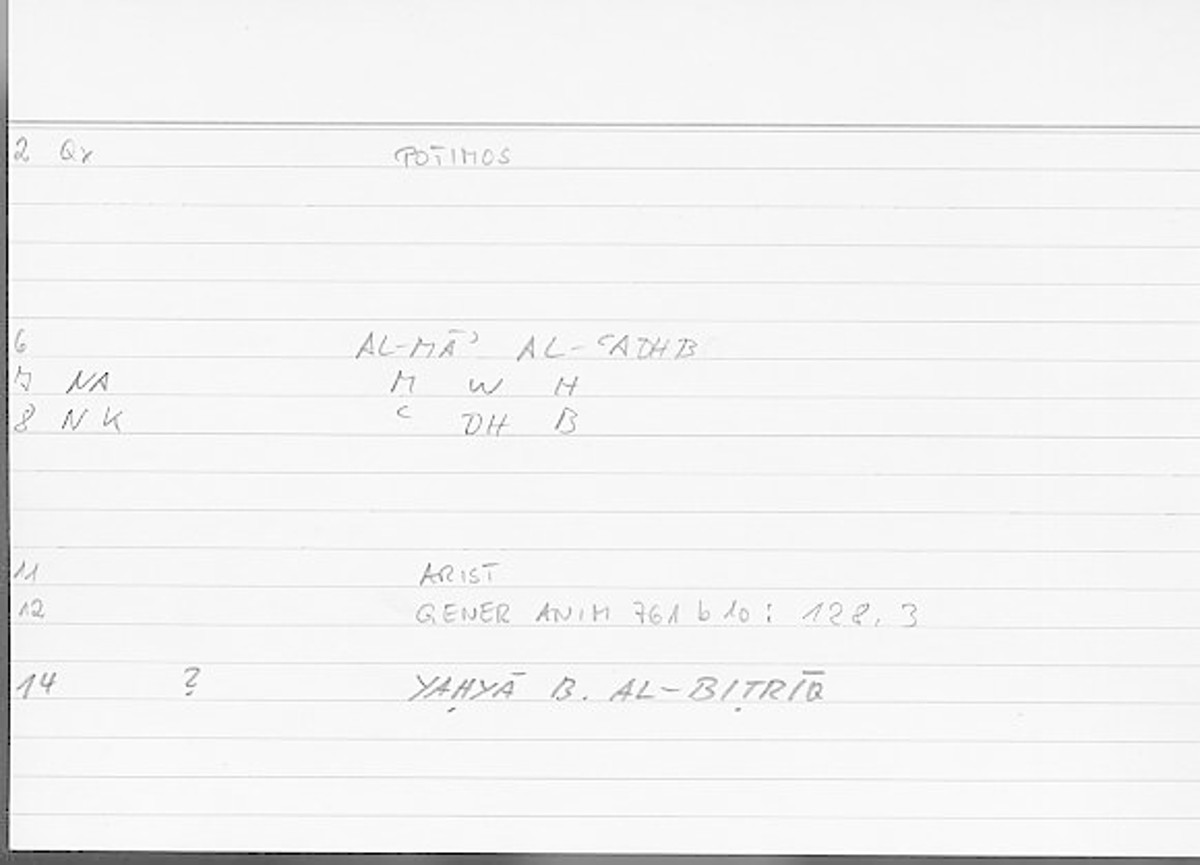 2 Qr POTIMOS
6 AL-MĀʾ AL-ʿADHB
7 NA M W H
8 NK ʿ DH B
11 ARIST
12 GENER ANIM 761 b 10 : 128, 3
14 ? YAḤYĀ B. AL-BIṬRĪQ